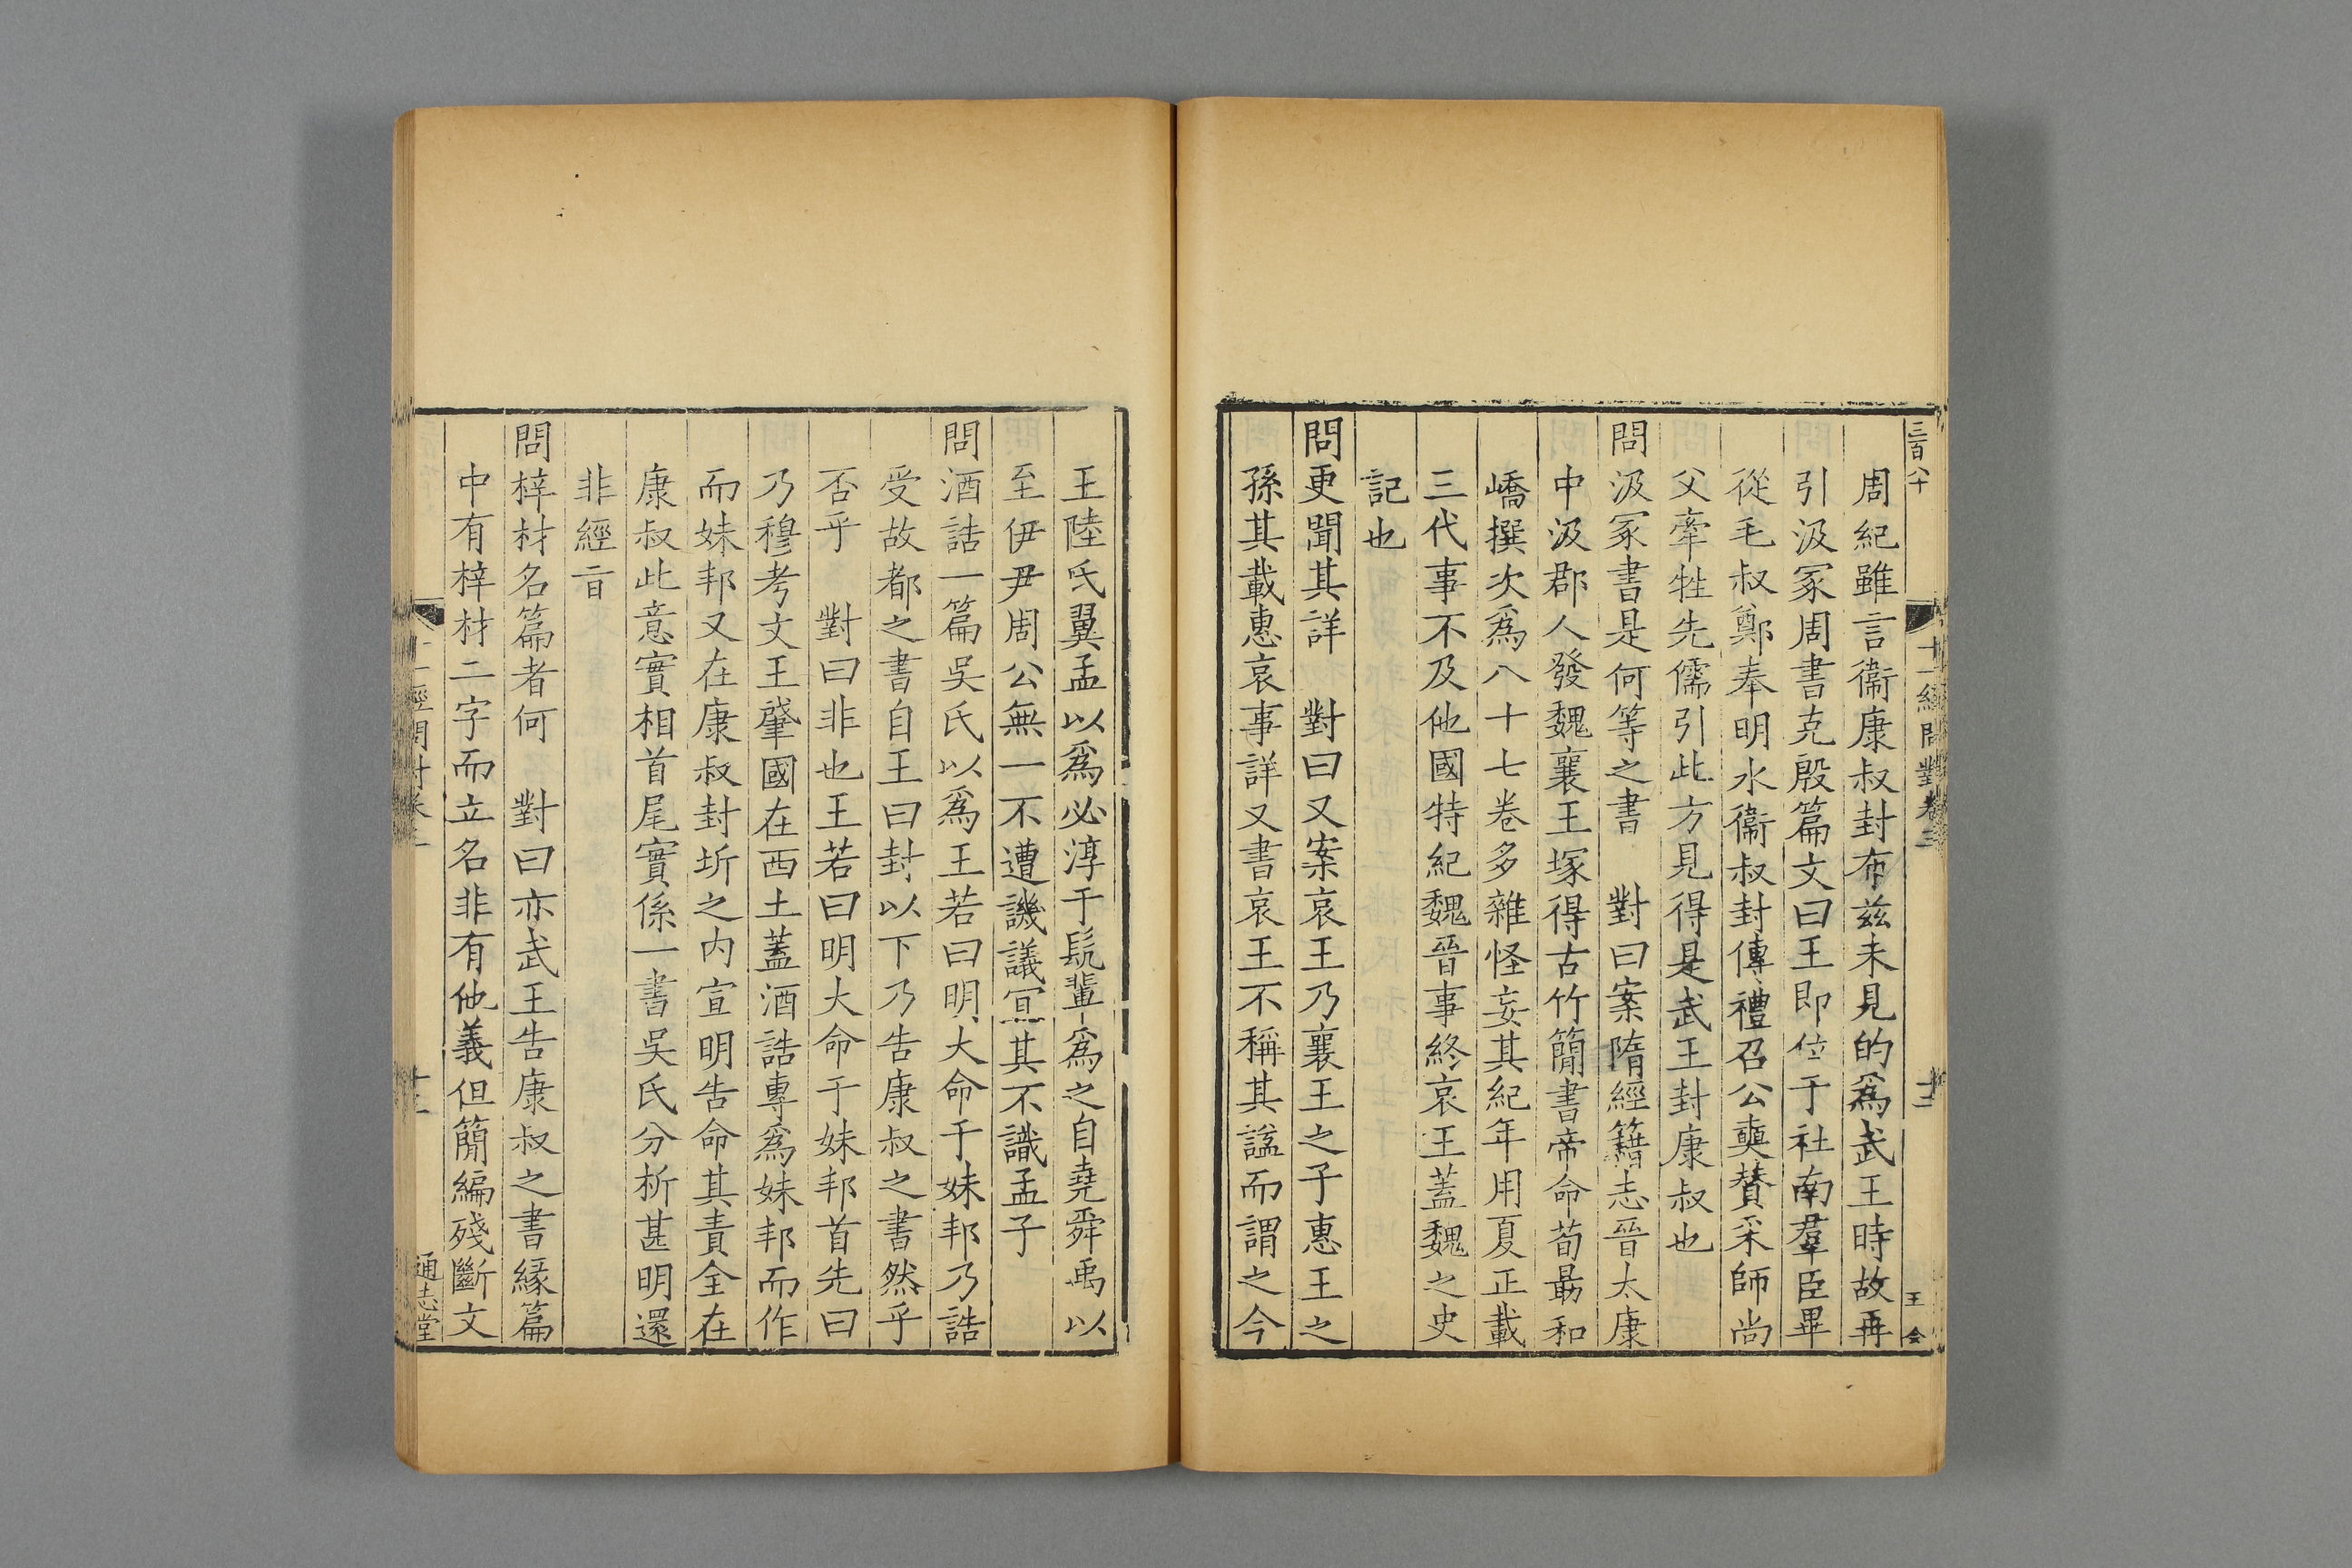 三百八十
十一經問對卷三
十二
王 会
周紀雖言衞康叔封布兹未見的爲武王時故再
引汲冢周書克殷篇文曰王即位于社南羣臣畢
從毛叔鄭奉明水衞叔封傳禮召公奭賛采師尚
父牽牲先儒引此方見得是武王封康叔也
問汲冢書是何等之書　對曰案隋經籍志晉太康
中汲郡人發魏襄王塚得古竹簡書帝命荀勗和
嶠撰次爲八十七卷多雜怪妄其紀年用夏正載
三代事不及他國特紀魏晉事終哀王蓋魏之史
記也
問更聞其詳　對曰又案哀王乃襄王之子惠王之
孫其載惠哀事詳又書哀王不稱其諡而謂之今
王陸氏翼孟以爲必淳于髡輩爲之自堯舜禹以
至伊尹周公無一不遭譏議冝其不識孟子
問酒誥一篇吳氏以爲王若曰明大命于妹邦乃誥
受故都之書自王曰封以下乃告康叔之書然乎
否乎　對曰非也王若曰明大命于妹邦首先曰
乃穆考文王肇國在西土蓋酒誥專爲妹邦而作
而妹邦又在康叔封圻之内宣明告命其責全在
康叔此意實相首尾實係一書吳氏分析甚明還
非經㫖
問梓材名篇者何　對曰亦武王告康叔之書緣篇
中有梓材二字而立名非有他義但簡編殘斷文
十一經問對卷三
十二
通志堂